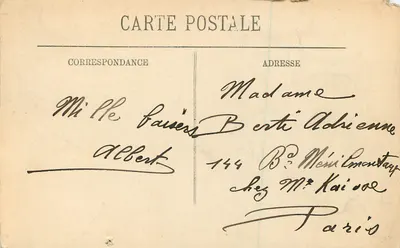 CARTE POSTALE
CORRESPONDANCE
ADRESSE
Mille baisers
Albert
Madame
Berti Adrienne
144 Bd Ménilmontant
chez Mr
Paris